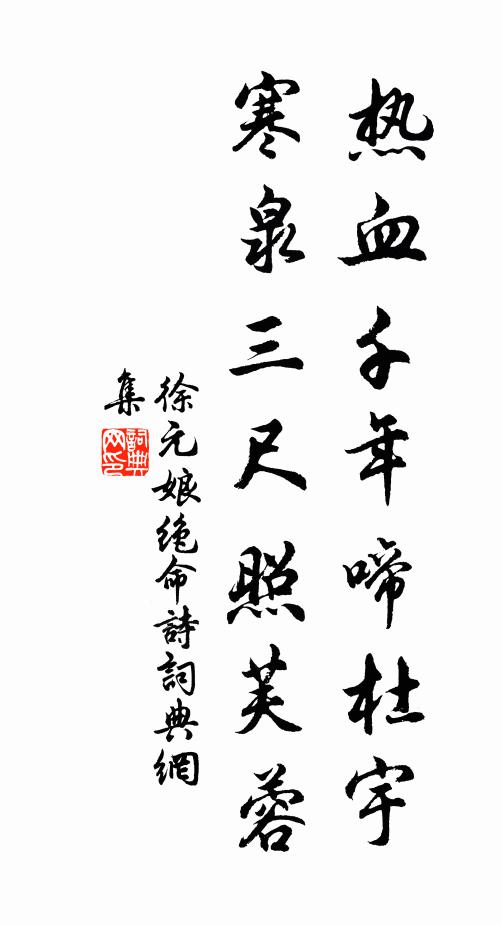 热血千年啼杜宇
寒泉三尺照芙蓉
徐元娘绝命詩詞典網
集
詞典网印